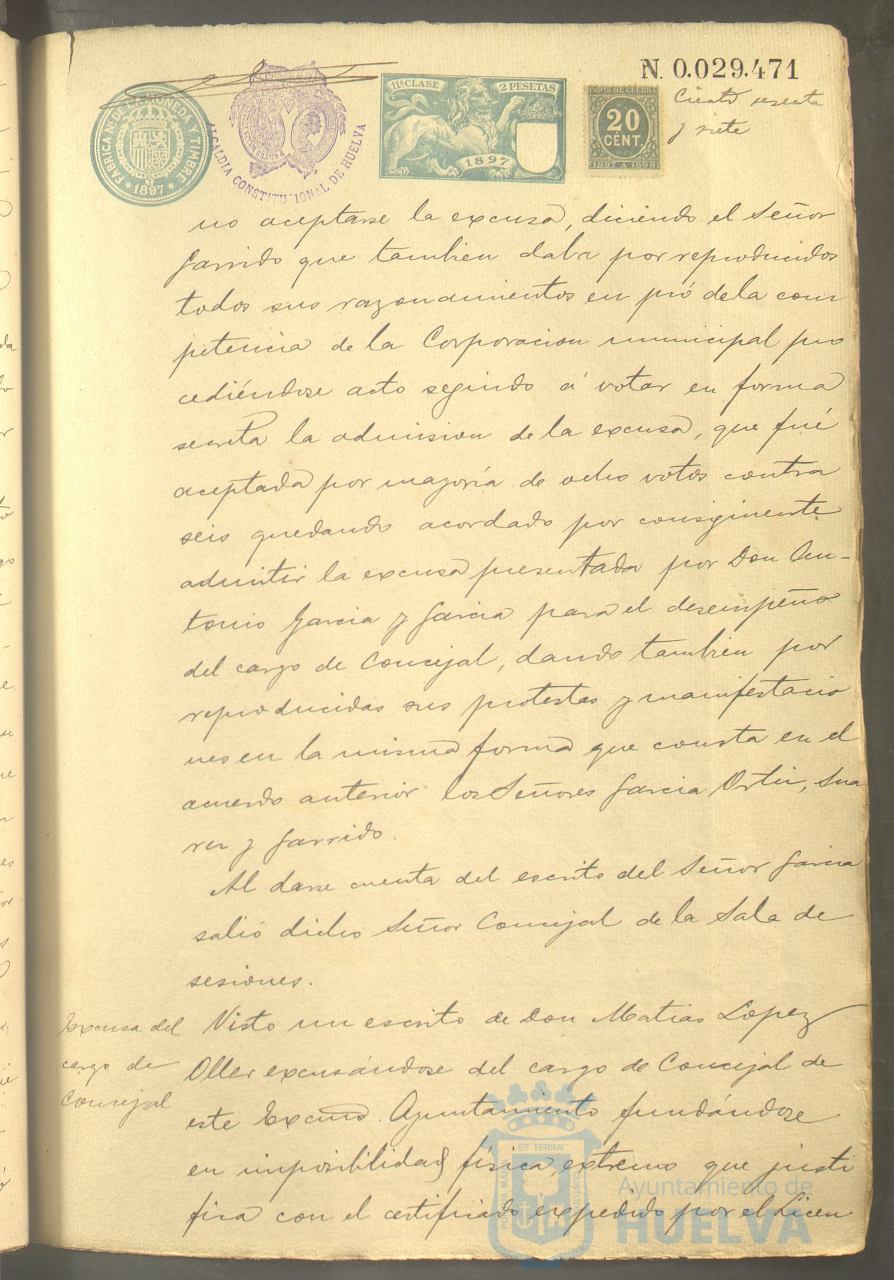 N. 0.029.471
Ciento sesenta
y siete
FÁBRICA Nl. DE LA MONEDA Y TIMBRE
1897
ALCALDIA CONSTITUCIONAL DE HUELVA
11ª CLASE 2 PESETAS
1897
20
CENT.
1897 A 1898
no aceptarse la excusa, diciendo el Señor
Garrido que tambien daba por reproducidos
todos sus razonamientos en pró de la com
petencia de la Corporacion municipal pro
cediéndose acto seguido á votar en forma
secreta la admision de la excusa, que fué
aceptada por mayoría de ocho votos contra
seis quedando acordado por consiguiente
admitir la excusa presentada por Don An-
tonio Garcia y Garcia para el desempeño
del cargo de Concejal, dando tambien por
reproducidas sus protestas y manifestacio
nes en la misma forma que consta en el
acuerdo anterior los Señores Garcia Ortiz, Sua
rez y Garrido.
Al darse cuenta del escrito del Señor Garcia
salió dicho Señor Concejal de la Sala de
sesiones.
Excusa del
cargo de
Concejal
Visto un escrito de Don Matias Lopez
Oller excusándose del cargo de Concejal de
este Excmo. Ayuntamiento fundándose
en imposibilidad física, extremo que justi
fica con el certificado expedido por el Licen
ET TERRÆ
Ayuntamiento de
HUELVA